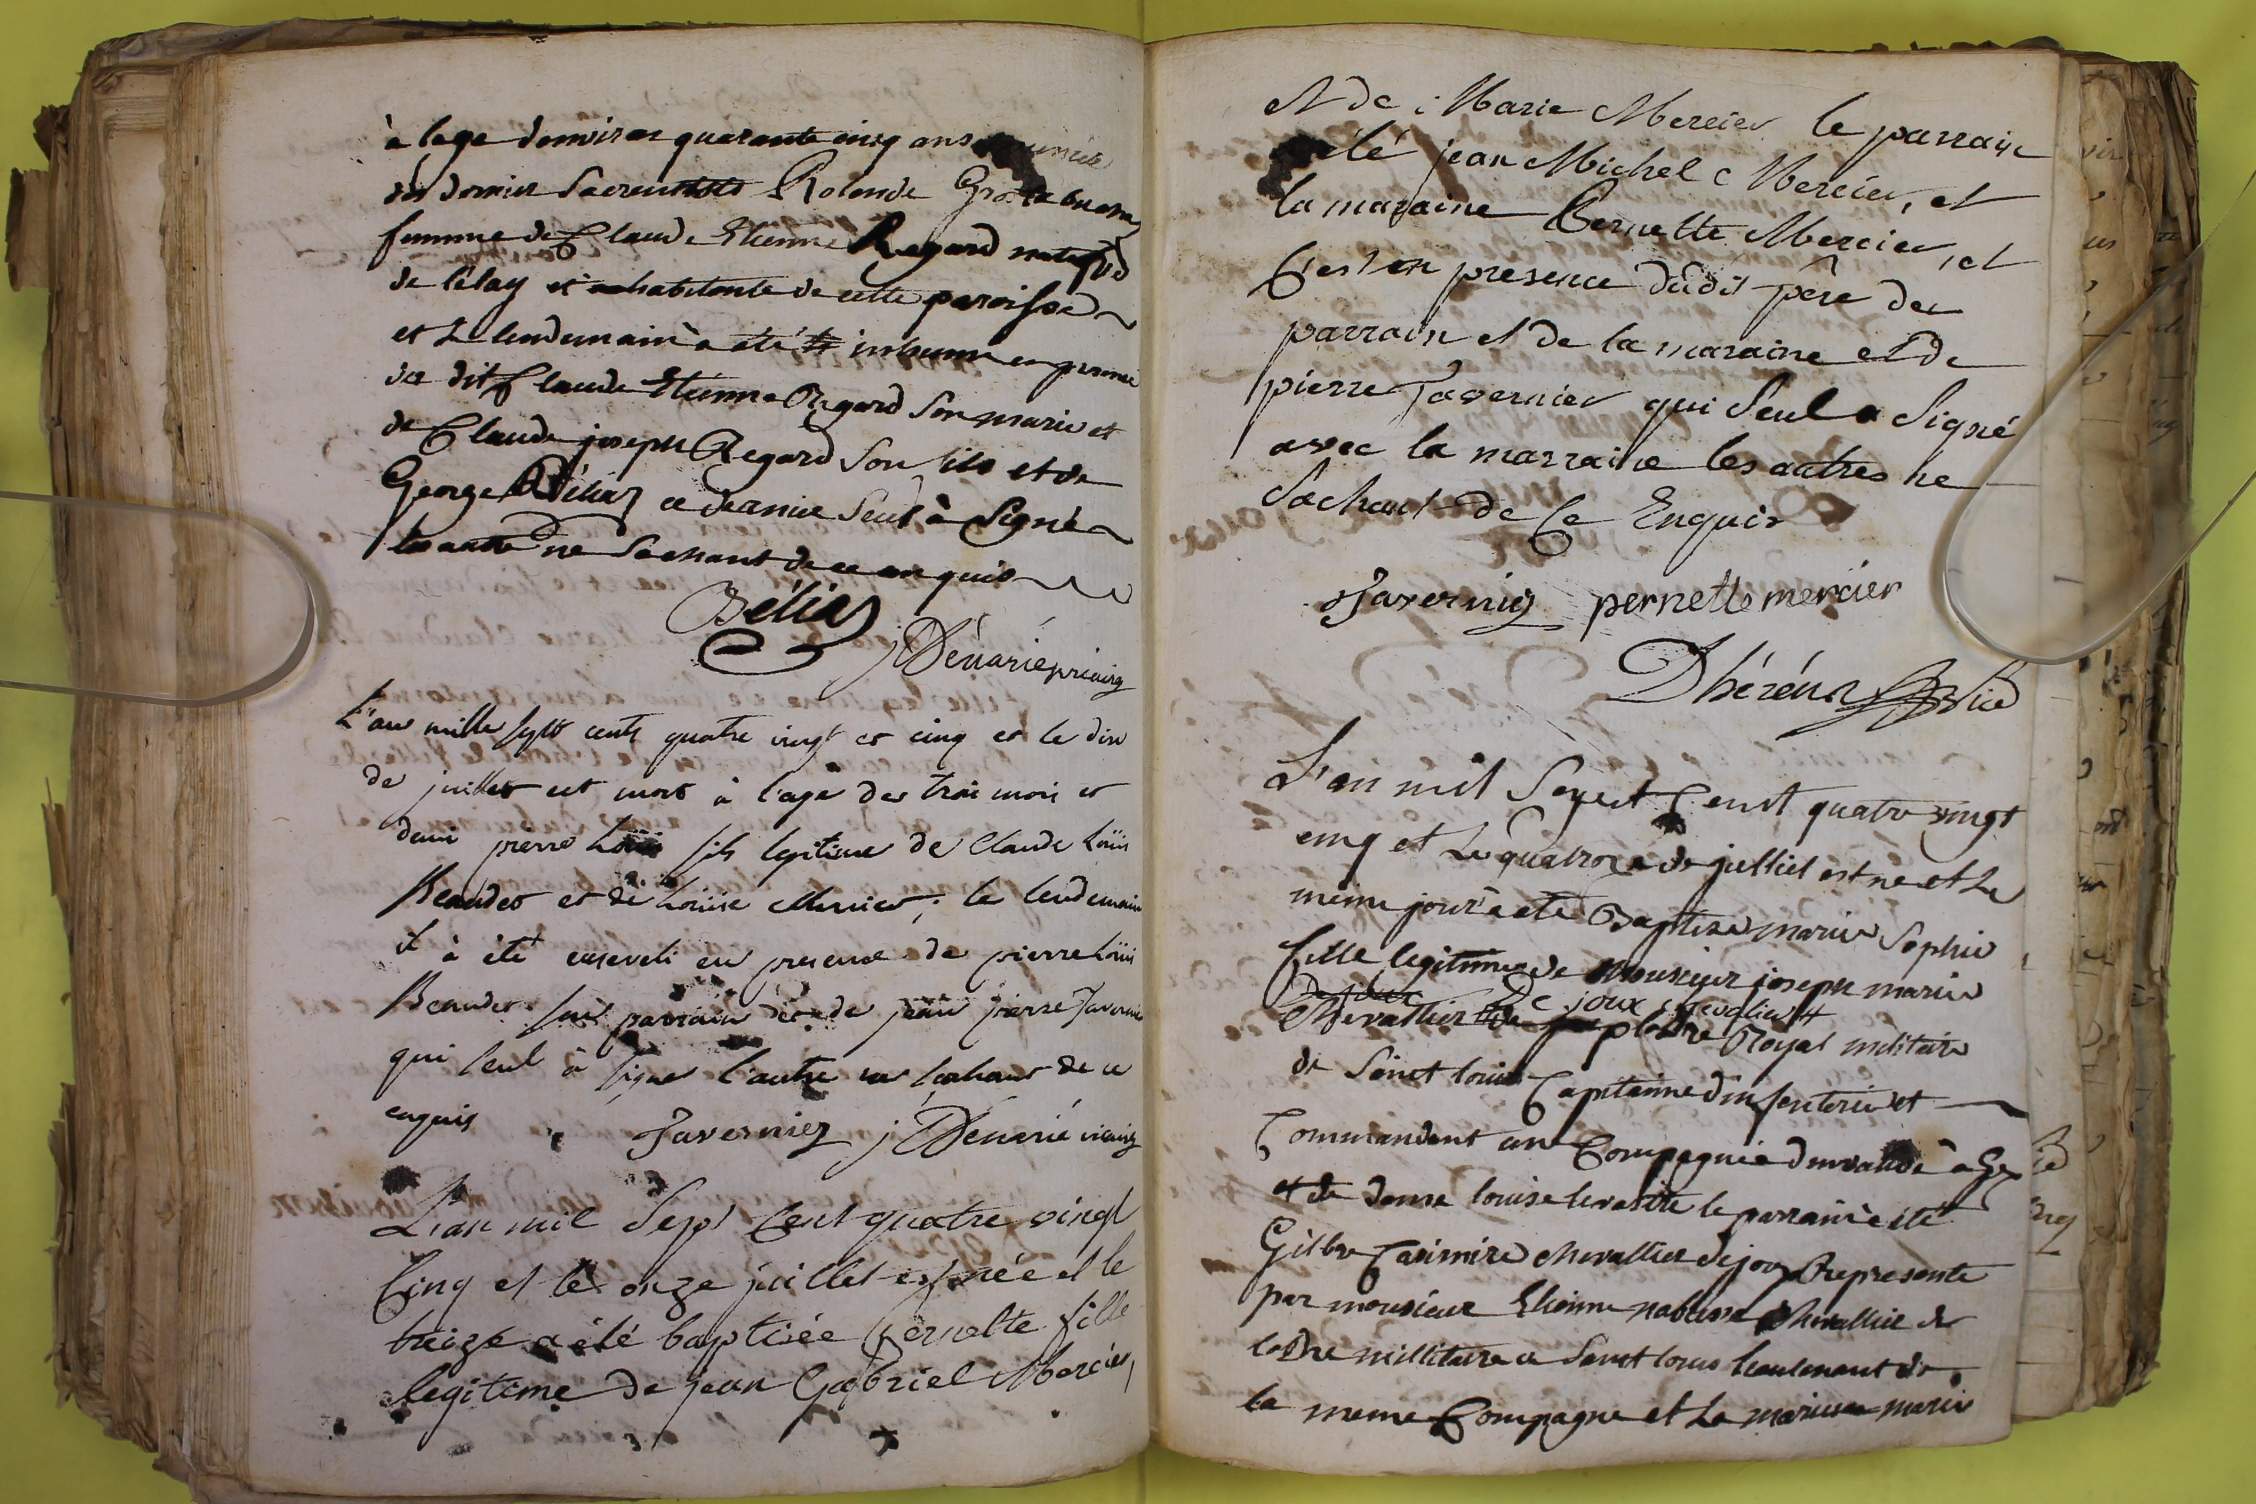 à lage demviron quarante cinq ans munie
des dernier Sacrements Rolende
femme de Claude Etienne Regard natif
de Lélay et habitante de cette paroisse
et Le lendemain à eté inhumé en presence
du dit Claude Etienne Regard Son marie et
de Claude joseph Regard Son fils et de
George Béliaz ce dernier Seul à Signé
les autre ne Sachant de ce enquis
Béliaz
j Dénarié vicaire
L'an mille sept cents quatre vingt et cinq et le dix
de juillet est mort à l'age de trois mois et
demi pierre Loüis fils legitime de Claude Loüis
Beaudet et de Loüise Mercier; le lendemain
il à été enseveli en presence de pierre Loüis
Beaudet son parrain et de jean pierre Tavernier
qui seul à signé l'autre ne sachant de ce
enquis Tavernier j Dénarié vicaire
L'an mil Sept Cent quatre vingt
Cinq et le onze juillet est née et le
treize a été baptisée Pernette fille
legitime de jean Gabriel Mercier,
et de Marie Mercier le parrain
été jean Michel Mercier, et
la maraine Pernette Mercier, et
C'est en presence dudit père du
parrain et de la maraine et de
pierre Tavernier qui Seul a Signé
avec la marraine les autres ne
Sachant de Ce Enquis
Tavernier pernette mercier
Dhéréns
L'an mil Sepect Censt quatre vingt
cinq et Le quatroze de julliet est ne et Le
meme jour à eté Baptize marie Sophie
fille legitime de Monsieur joseph marie
De joux chevalier
Chevallier de lordre Royal militaire
de Sainct louis Capitaine d'infenterie et
Commandent une Compagnie dinvalide à Gex
et de dame louise levastre le parrain à eté
Gilbre Casimire chevallier dejoux Represente
par monsieur Etienne nabusse chevallier de
lordre millitaire a Senct louis lieutenant de
la meme Compagne et La marienne marie